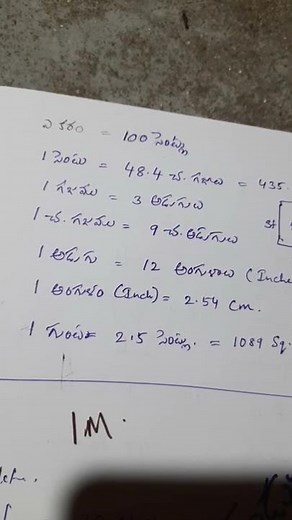 ఎకరం = 100 సెంట్లు
1 సెంటు = 48.4 చ. గజాలు = 435.
1 గజము = 3 అడుగులు
1 చ. గజము = 9 చ. అడుగులు
1 అడుగు = 12 అంగుళాలు (Inche
1 అంగుళం (Inch) = 2.54 cm.
1 గుంట = 2.5 సెంట్లు. = 1089 Sq.
1M.